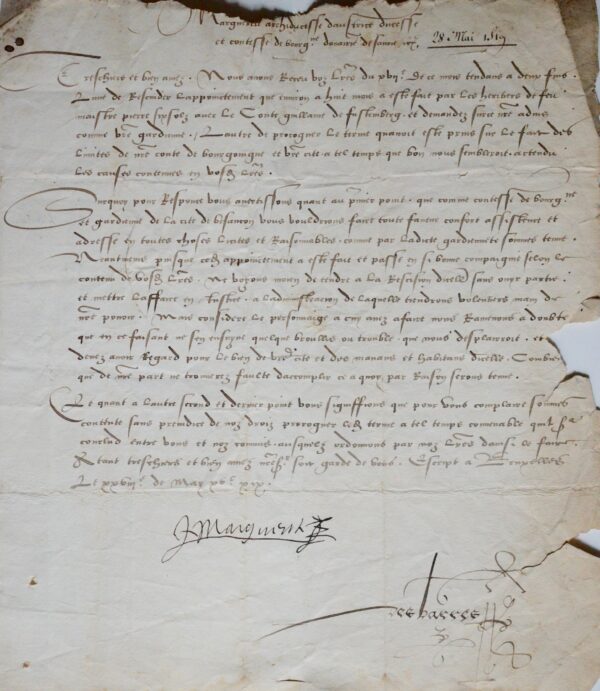 Marguerite archiducesse daustrice ducesse
et contesse de bourgne douaire de savoie
28 Mai 1519
Treschiers et bien amez. Nous avons Receu voz lres du xvije de ce mois tendans a deux fins
Lune de Rescinder lappoinctement que environ a huit mois a este fait par les heritiers de feu
maistre pierre avec le Conte guillame de fustemberg. et demandez sur ce nre advis
comme vre gardienne. Lautre de proroguer le terme quavoit este prins sur le fait des
limites de nre conte de bourgongne et vre cite a tel temps que bon nous sembleroit. actendu
les causes contenues en vosd lres.
Surquoy pour Response vous advertissons quant au premier point. que comme contesse de bourgne
et gardienne de la cite de bisancon vous vouldrions faire toute faveur confort assistence et
adresse en toutes choses licites et Raisonnables. comme par ladite gardiennete sommes tenue.
Neantmoins puisque cedit appoinctement a este fait et passe en si bonne compaignie selon le
contenu de vosd lres. Ne voyons moien de tendre a la Rescision dicelluy sans ouyr partie.
et mettre laffaire en Justice. a ladministracion de laquelle tiendrons voulentiers main de
nre povoir. Mais considere le personnaige a cuy avez afaire nous Ramenons a doubte
que en ce faisant ne sen ensuyve quelque brouillis ou trouble que nous desplairoit. et
devez avoir Regard pour le bien de vre cite et des manans et habitans dicelle. Combien
que de nre part ne trouverez faulte daccomplir ce a quoy par Raison serons tenue.
Et quant a lautre second et dernier point vous signiffions que pour vous complaire sommes
contente sans preiudice de noz droiz proroguer led terme a tel temps convenable quil sera
conclud entre vous et noz commis. ausquelz ordonnons par noz lres dainsi le faire.
Atant treschiers et bien amez nre sr soit garde de vous. Escript a Bruxelles
Le xxviije de May xvc xix.
Marguerite